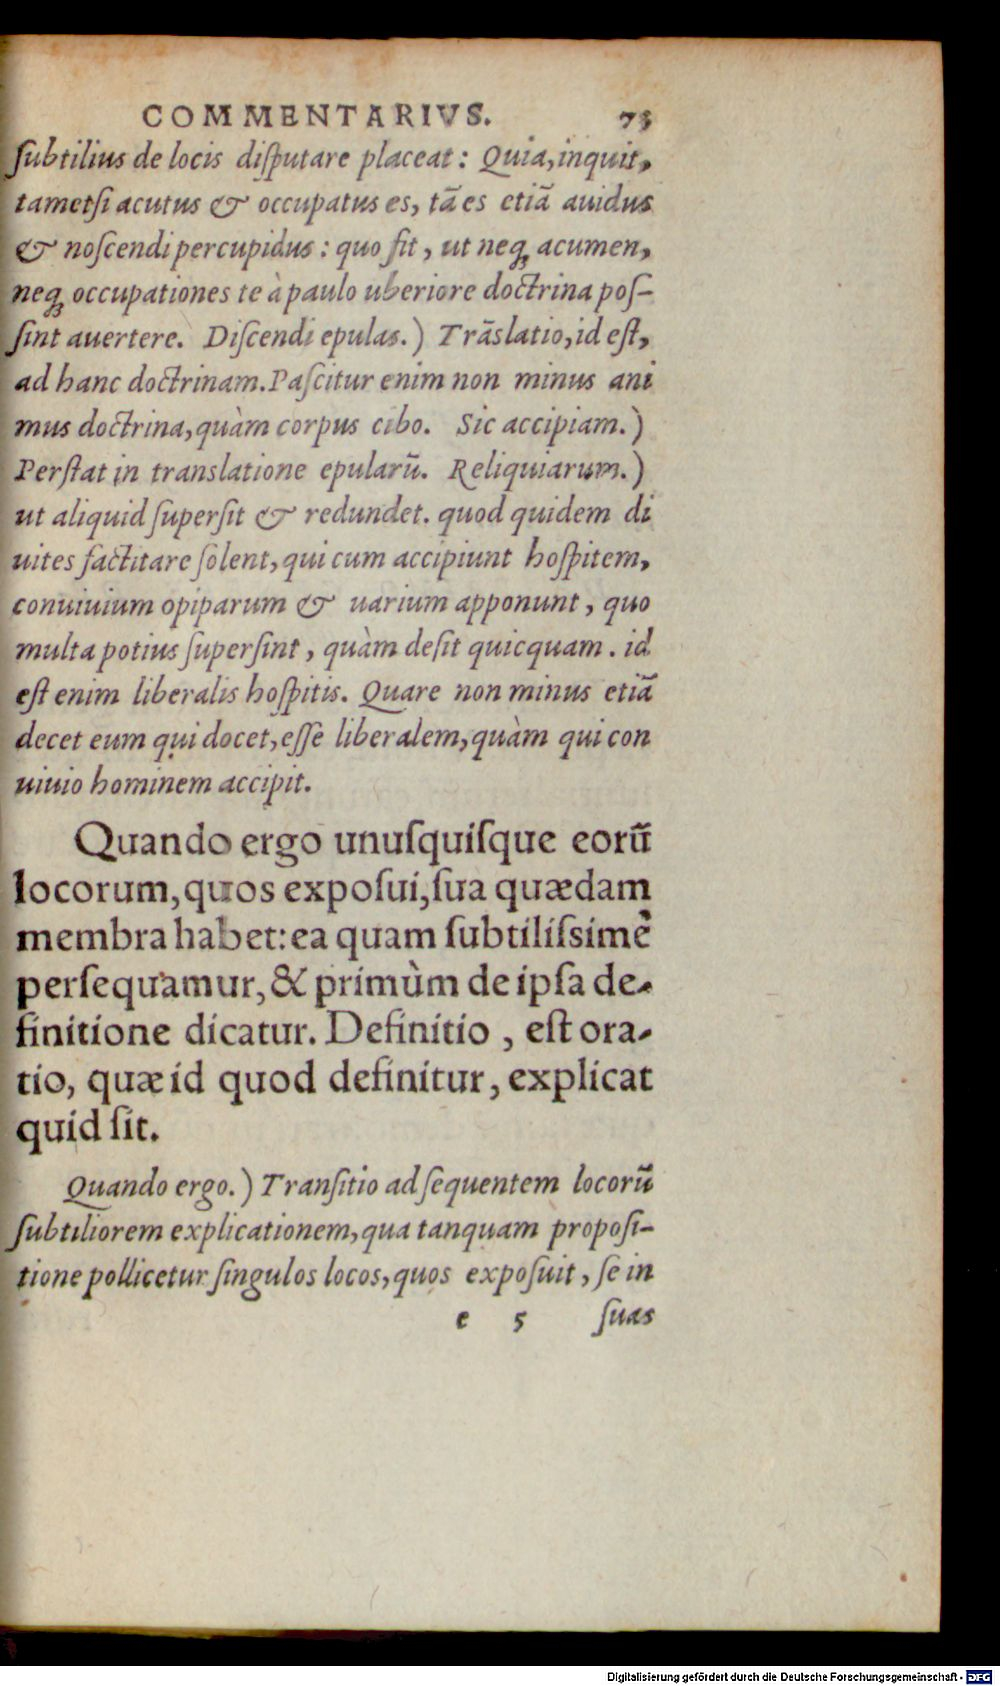 COMMENTARIVS. 73
ſubtilius de locis diſputare placeat: Quia, inquit,
tametſi acutus & occupatus es, tã es etiã auidus
& noſcendi percupidus: quo fit, ut neq; acumen,
neq; occupationes te à paulo uberiore doctrina poſ-
ſint auertere. Diſcendi epulas.) Trãslatio, id eſt,
ad hanc doctrinam. Paſcitur enim non minus ani
mus doctrina, quàm corpus cibo. Sic accipiam.)
Perſtat in translatione epularũ. Reliquiarum.)
ut aliquid ſuperſit & redundet. quod quidem di
uites factitare ſolent, qui cum accipiunt hoſpitem,
conuiuium opiparum & uarium apponunt, quo
multa potius ſuperſint, quàm deſit quicquam. id
eſt enim liberalis hoſpitis. Quare non minus etiã
decet eum qui docet, eſſe liberalem, quàm qui con
uiuio hominem accipit.
Quando ergo unuſquiſque eorũ
locorum, quos expoſui, ſua quædam
membra habet: ea quam ſubtiliſsimè
perſequamur, & primùm de ipſa de-
finitione dicatur. Definitio, eſt ora-
tio, quæ id quod definitur, explicat
quid ſit.
Quando ergo.) Tranſitio ad ſequentem locorũ
ſubtiliorem explicationem, qua tanquam propoſi-
tione pollicetur ſingulos locos, quos expoſuit, ſe in
e 5 ſuas
Digitalisierung gefördert durch die Deutsche Forschungsgemeinschaft - DFG